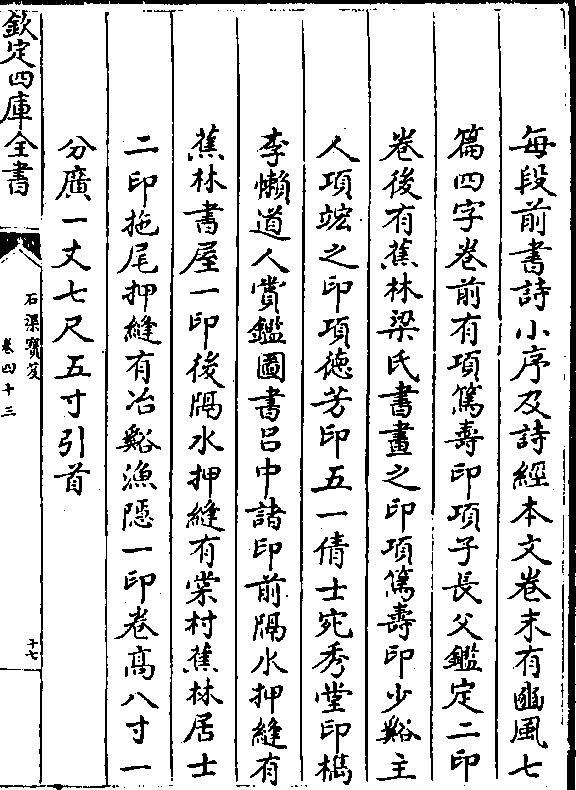 每段前書詩小序及詩經本文卷末有豳風七
篇四字卷前有項篤壽印項子長父鑑定二印
卷後有蕉林梁氏書畫之印項篤壽印少谿主
人項竑之印項徳芳印五一倩士宛秀堂印檇
李懶道人賞鑑圖書吕中諸印前隔水押縫有
蕉林書屋一印後隔水押縫有棠村蕉林居士
二印拖尾押縫有冶谿漁隱一印卷髙八寸一
分廣一丈七尺五寸引首
欽定四庫全書
石渠寳笈
卷四十三
十七